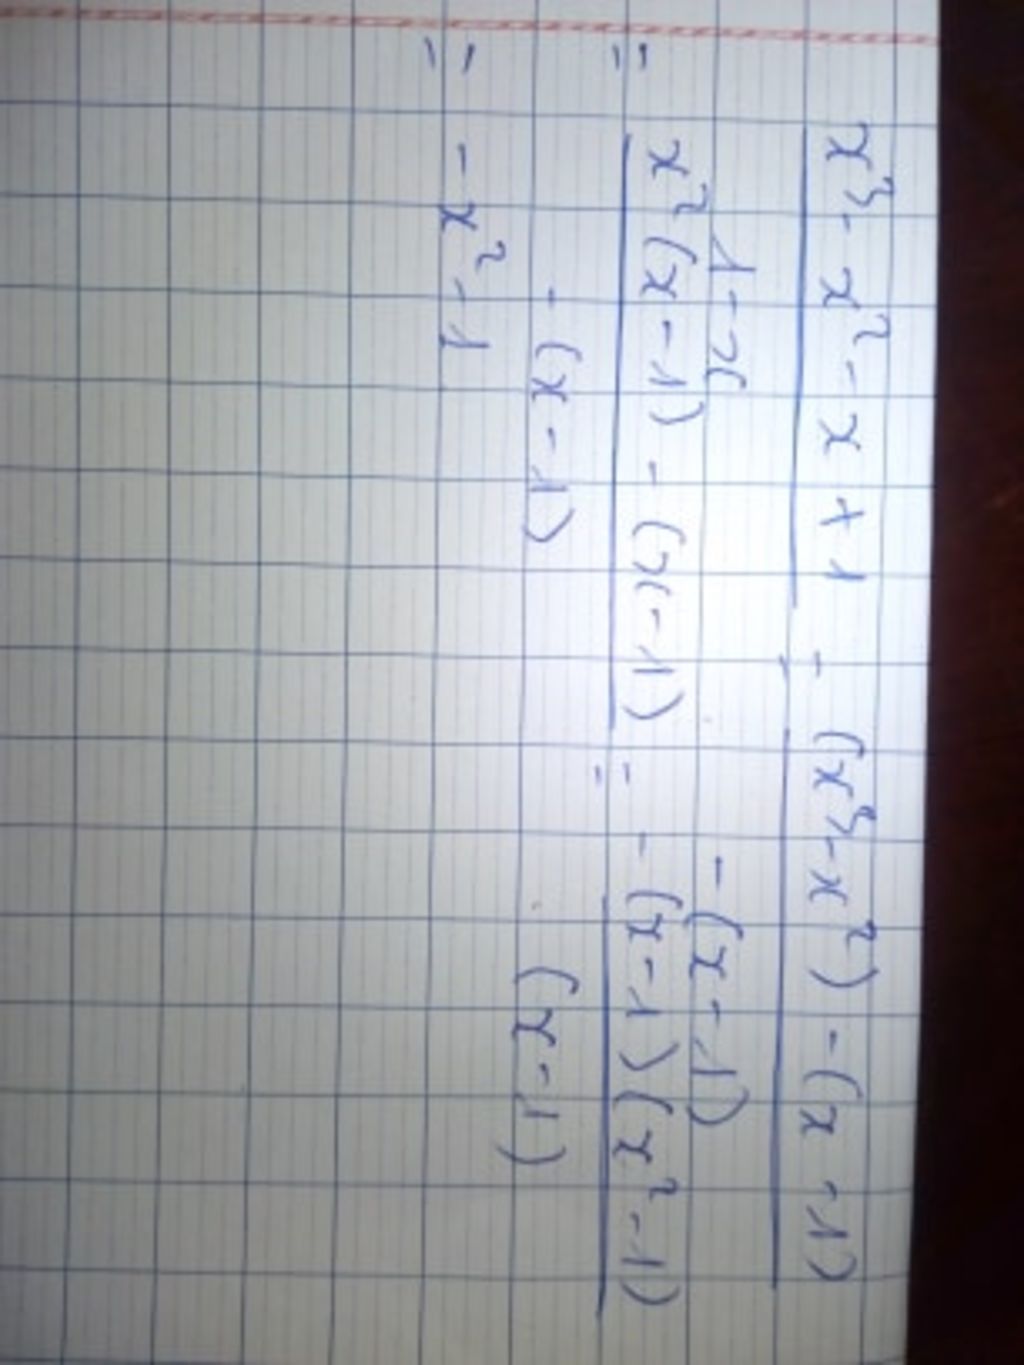 x³ - x² - x + 1 = (x³ - x²) - (x - 1)
1 - x - (x - 1)
= x² (x - 1) - (x - 1) = - (x - 1) (x² - 1)
- (x - 1) (x - 1)
= - x² - 1